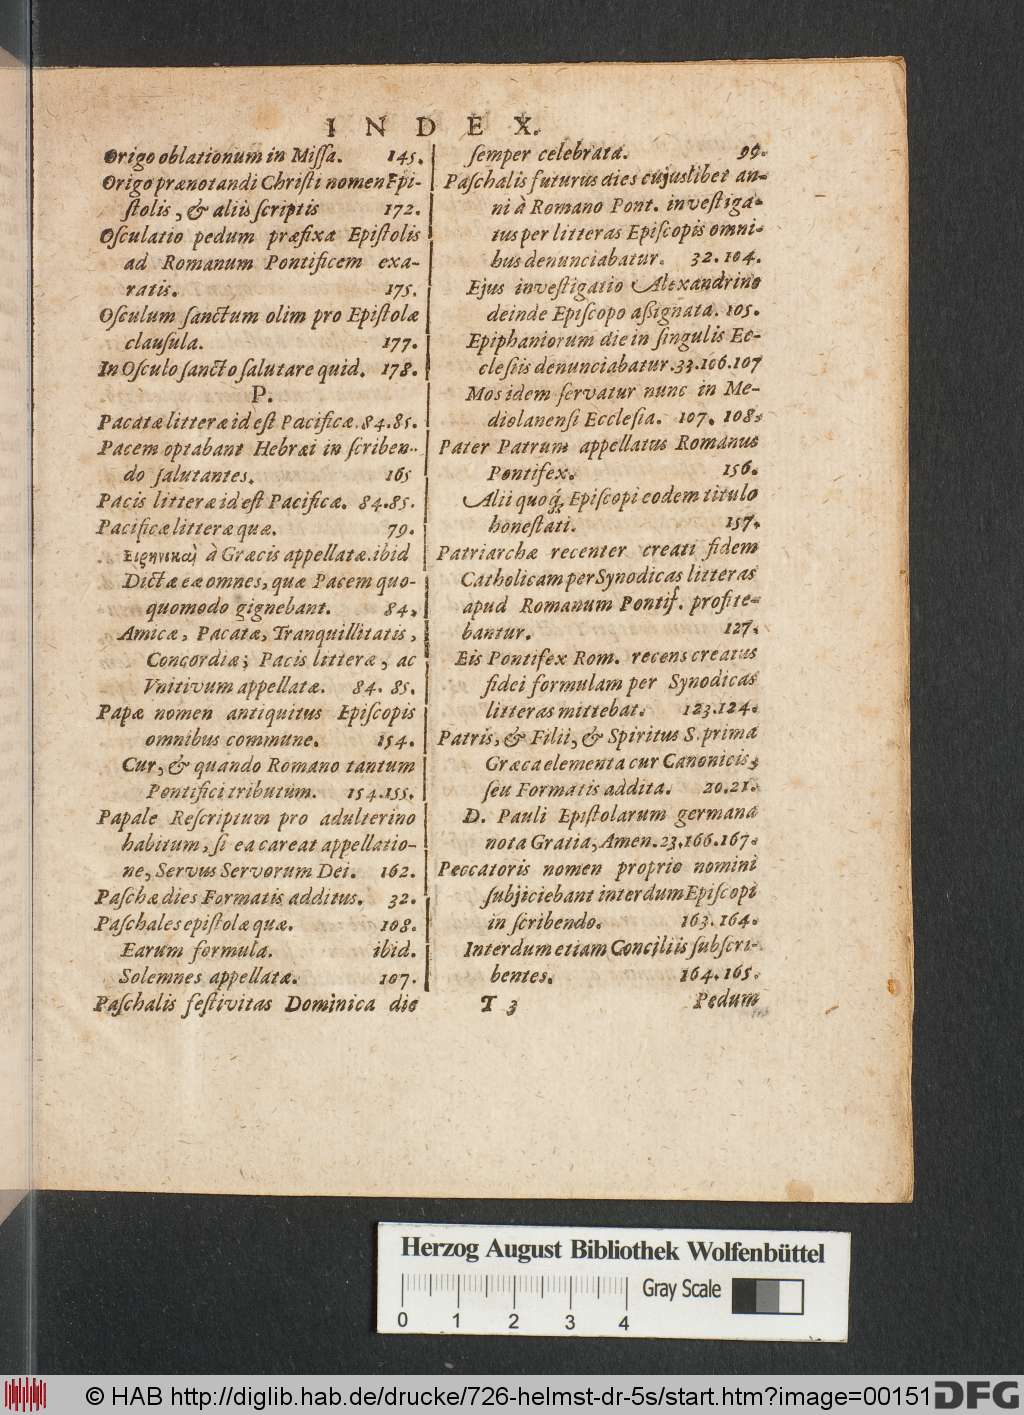 INDEX.
Origo oblationum in Missa. 145.
Origo prænotandi Christi nomen Epi-
stolis, & aliis scriptis 172.
Osculatio pedum præfixa Epistolis
ad Romanum Pontificem exa-
ratis. 175.
Osculum sanctum olim pro Epistolæ
clausula. 177.
In Osculo sancto salutare quid. 178.
P.
Pacatæ litteræ id est Pacificæ. 84.85.
Pacem optabant Hebræi in scriben-
do salutantes. 165
Pacis litteræ id est Pacificæ. 84.85.
Pacificæ litteræ quæ. 79.
Εἰρηνικαὶ à Græcis appellatæ. ibid
Dictæ eæ omnes, quæ Pacem quo-
quomodo gignebant. 84.
Amicæ, Pacatæ, Tranquillitatis,
Concordiæ; Pacis litteræ, ac
Vnitivum appellatæ. 84. 85.
Papæ nomen antiquitus Episcopis
omnibus commune. 154.
Cur, & quando Romano tantum
Pontifici tributum. 154.155.
Papale Rescriptum pro adulterino
habitum, si ea careat appellatio-
ne, Servus Servorum Dei. 162.
Paschæ dies Formatis additus. 32.
Paschales epistolæ quæ. 108.
Earum formula. ibid.
Solemnes appellatæ. 107.
Paschalis festivitas Dominica die
semper celebrata. 99.
Paschalis futurus dies cujuslibet an-
ni à Romano Pont. investiga-
tus per litteras Episcopis omni-
bus denunciabatur. 32.104.
Ejus investigatio Alexandrino
deinde Episcopo assignata. 105.
Epiphaniorum die in singulis Ec-
clesiis denunciabatur. 33.106.107
Mos idem servatur nunc in Me-
diolanensi Ecclesia. 107. 108.
Pater Patrum appellatus Romanus
Pontifex. 156.
Alii quoq; Episcopi eodem titulo
honestati. 157.
Patriarchæ recenter creati fidem
Catholicam per Synodicas litteras
apud Romanum Pontif. profite-
bantur. 127.
Eis Pontifex Rom. recens creatus
fidei formulam per Synodicas
litteras mittebat. 123.124.
Patris, & Filii, & Spiritus S. prima
Græca elementa cur Canonicis,
seu Formatis addita. 20.21.
D. Pauli Epistolarum germana
nota Gratia, Amen. 23.166.167.
Peccatoris nomen proprio nomini
subjiciebant interdum Episcopi
in scribendo. 163.164.
Interdum etiam Conciliis subscri-
bentes. 164.165.
T 3 Pedum
Herzog August Bibliothek Wolfenbüttel
Gray Scale
0 1 2 3 4
© HAB http://diglib.hab.de/drucke/726-helmst-dr-5s/start.htm?image=00151
DFG